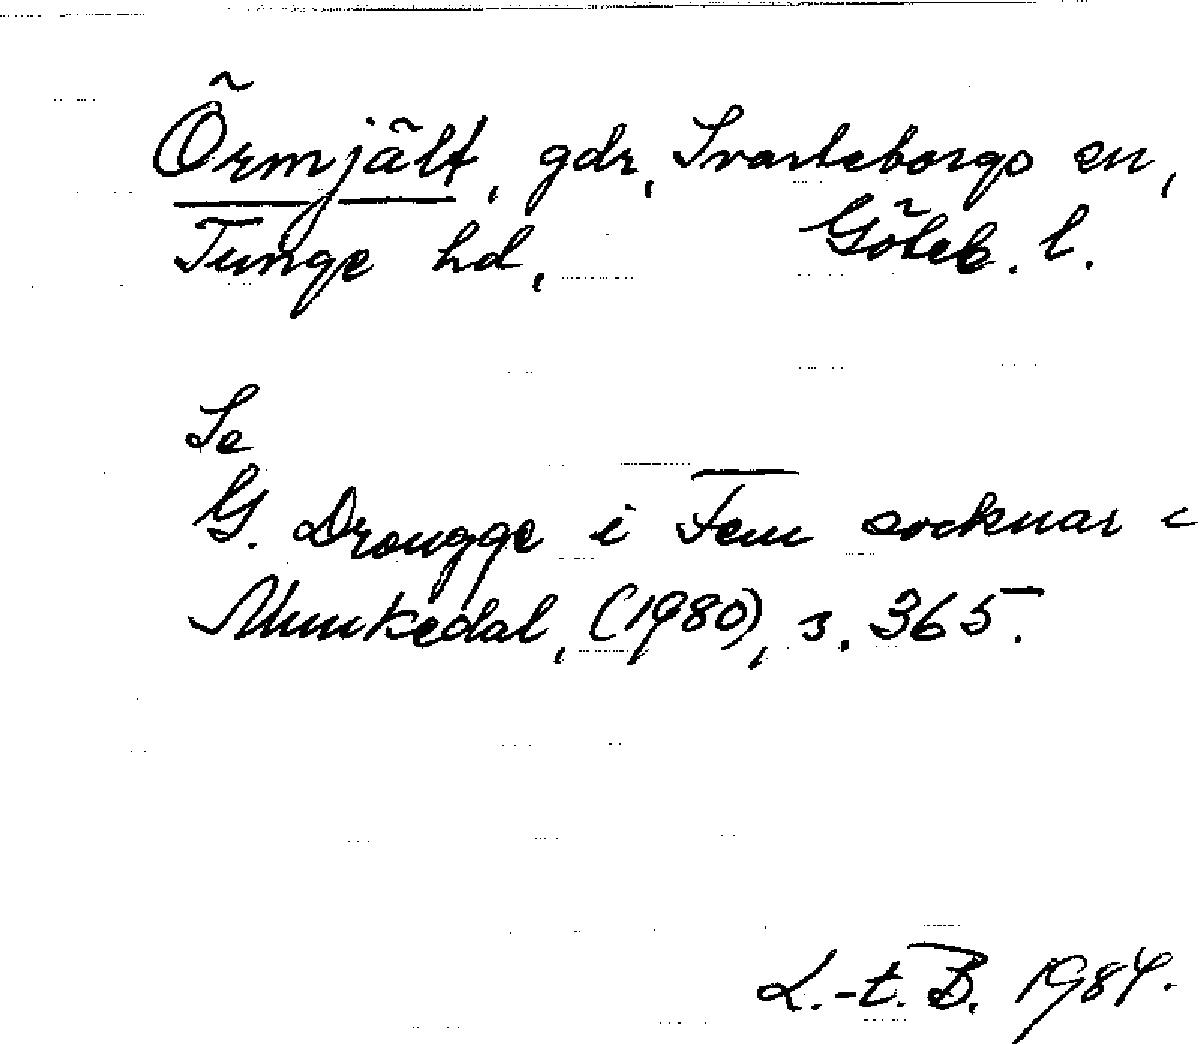 Örmjält, gdr, Svarteborgs sn,
Tunge hd, Göteb. l.
Se
G. Drougge i Fem socknar i
Munkedal, (1980), s. 365.
L.-t. B. 1984.